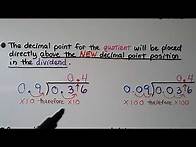 • The decimal point for the quotient will be placed
directly above the NEW decimal point position
in the dividend.
0.4
0.9 0.3 6
x10 therefore x10
0.4
0.09 0.0 3 6
x100 therefore x100